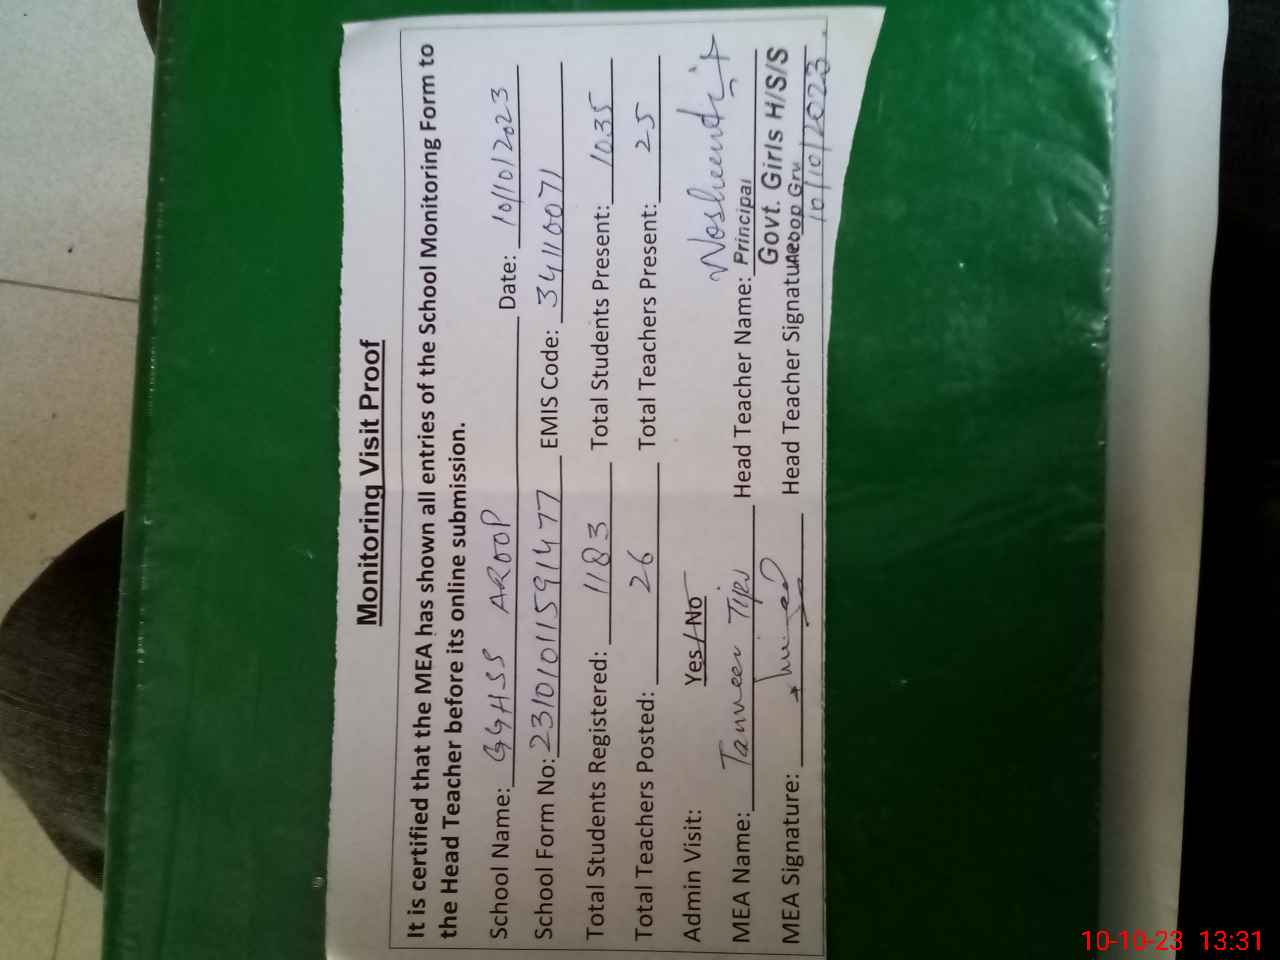 Monitoring Visit Proof
It is certified that the MEA has shown all entries of the School Monitoring Form to
the Head Teacher before its online submission.
School Name: GGHSS AROOP Date: 10/10/2023
School Form No: 23101011591477 EMIS Code: 34110071
Total Students Registered: 1183 Total Students Present: 1035
Total Teachers Posted: 26 Total Teachers Present: 25
Admin Visit: Yes/No
MEA Name: Tanveer Head Teacher Name: Principal
Govt. Girls H/S/S
MEA Signature: Head Teacher Signature: Aroop Grw
10/10/2023
10-10-23 13:31